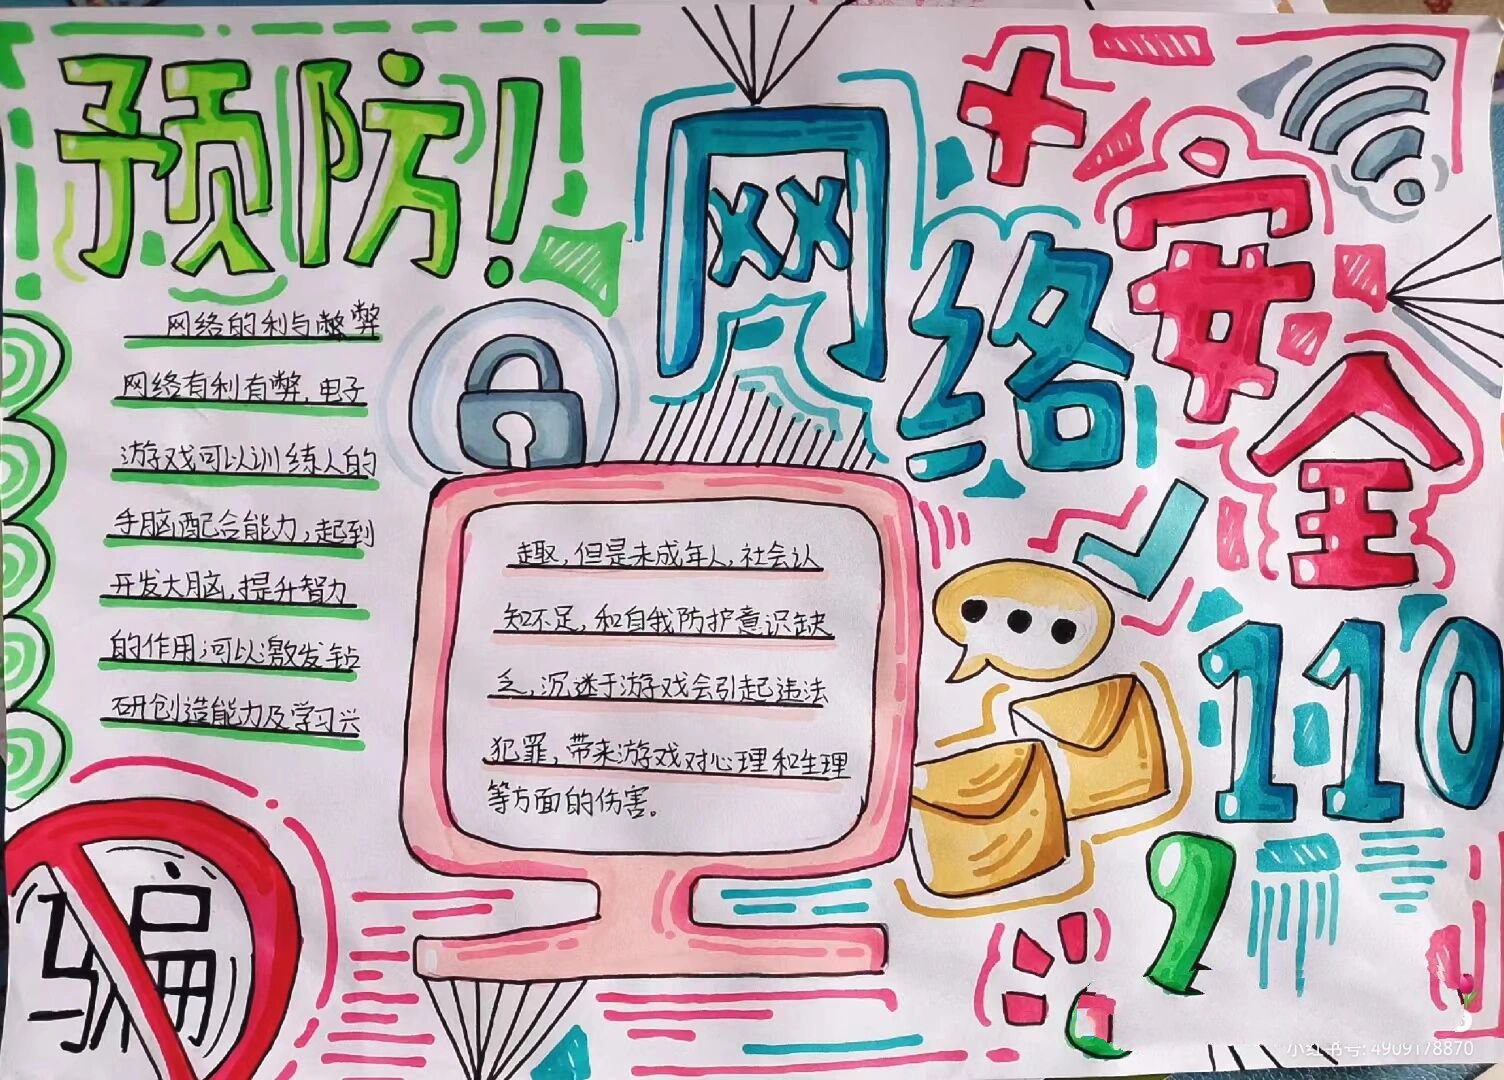 预防!
网络
安全
110
网络的利与弊
网络有利有弊,电子
游戏可以训练人的
手脑配合能力,起到
开发大脑,提升智力
的作用;可以激发钻
研创造能力及学习兴
趣,但是未成年人,社会认
知不足,和自我防护意识缺
乏,沉迷于游戏会引起违法
犯罪,带来游戏对心理和生理
等方面的伤害。
骗
小红书号: 4909178870